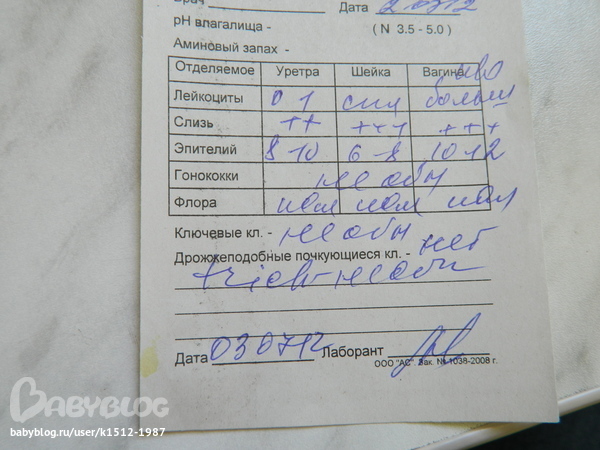 Врач Дата
pH влагалища - ( N 3.5 - 5.0 )
Аминовый запах -
Отделяемое Уретра Шейка Вагина
Лейкоциты 0 1
Слизь ++ +++ +++
Эпителий 8-10 6-8 10-12
Гонококки не обн
Флора
Ключевые кл. - не обн
Дрожжеподобные почкующиеся кл. - нет
trich-не обн
Дата 030712 Лаборант
ООО "АС". Зак. № 1038-2008 г.
BABYBLOG
babyblog.ru/user/k1512-1987